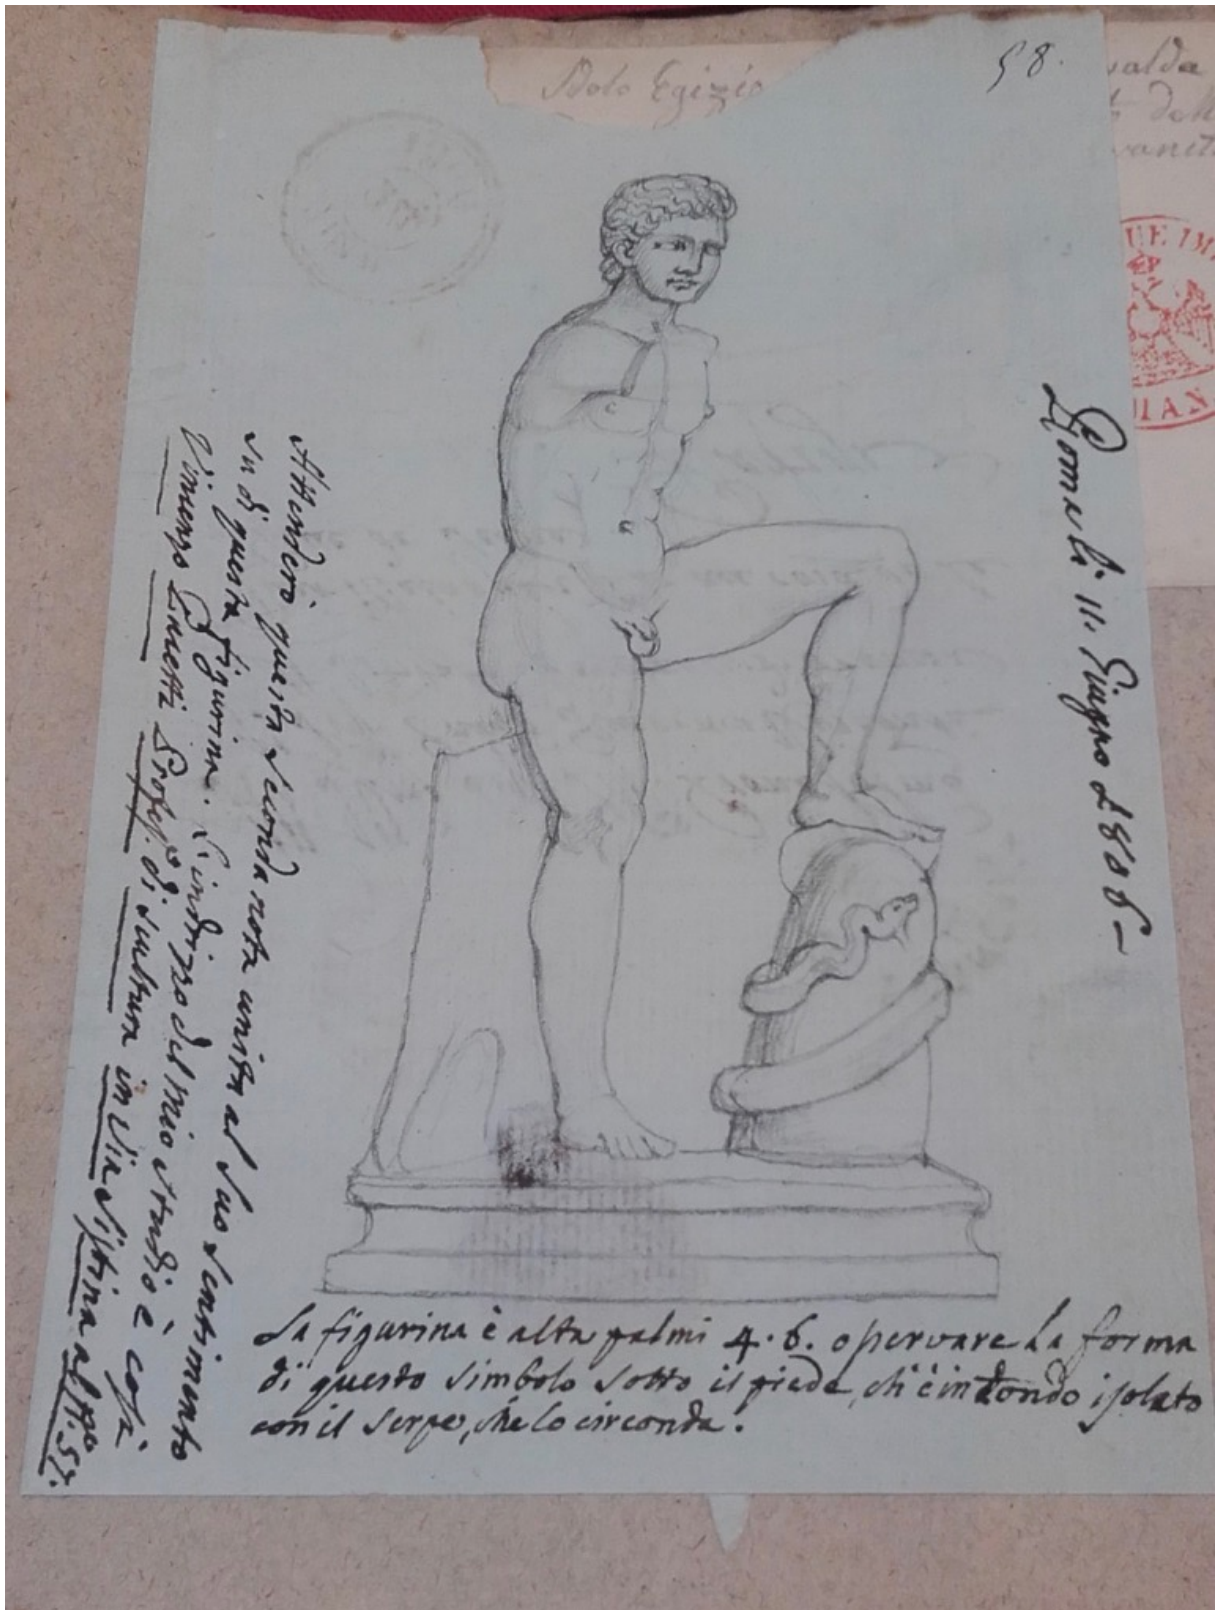 58.
Idolo Egizio
valda
dell
vanit
UE IM
EP
IAN
Roma li 11. Giugno 1806
Attenderò questa seconda nota unita al suo sentimento
su di questa figurina. L'indirizzo del mio studio è così
Vincenzo Profess.e di scultura in Via Sistina al N.o 57.
La figurina è alta palmi 4. 6. osservare la forma
di questo simbolo sotto il piede, ch'è in tondo isolato
con il serpe, che lo circonda.